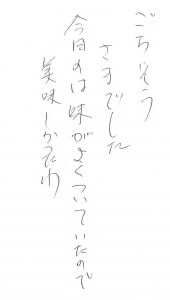 ごちそう
さまでした
今日のは味がよくついていたので
美味しかったわ